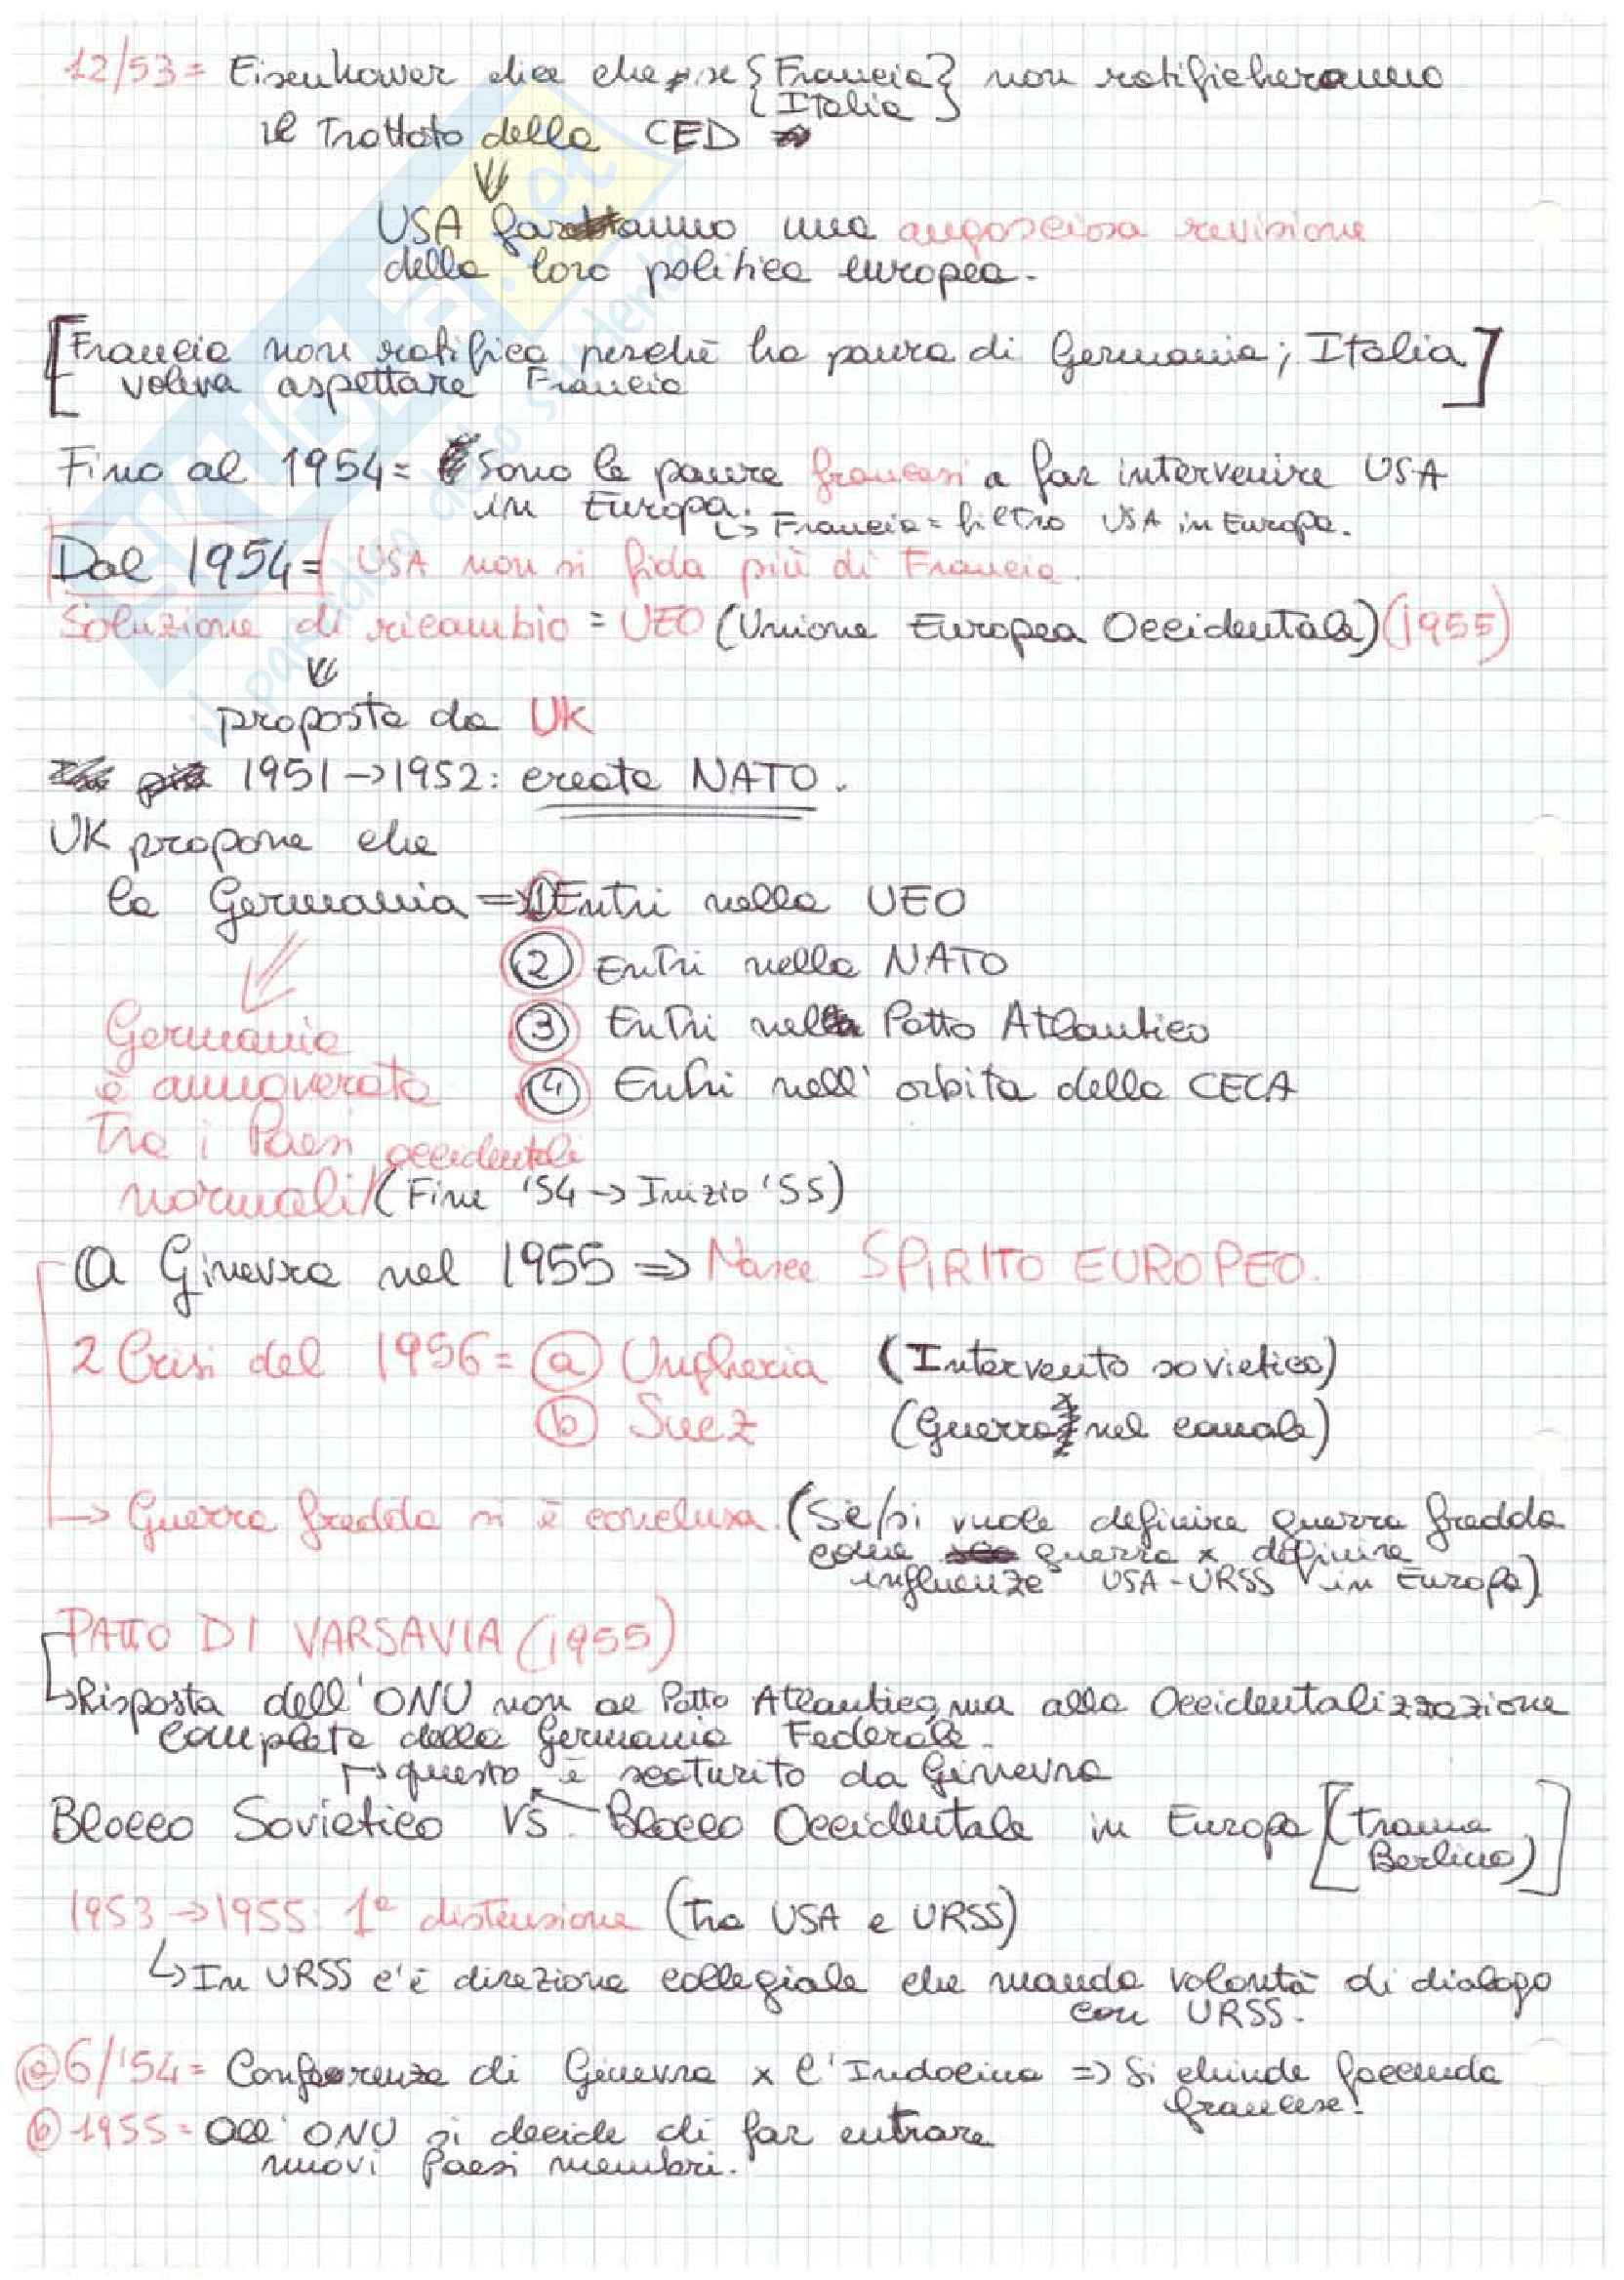 12/53 = Eisenhower dice che se {Francia} non ratificheranno
{Italia}
il Trattato della CED
⇓
USA faranno una angosciosa revisione
della loro politica europea.
[Francia non ratifica perchè ha paura di Germania; Italia]
voleva aspettare Francia
Fino al 1954 = Sono le paure francesi a far intervenire USA
in Europa.
↳ Francia = filtro USA in Europa.
Dal 1954 = USA non si fida più di Francia.
Soluzione di ricambio = UEO (Unione Europea Occidentale) (1955)
⇓
proposta da UK
1951 → 1952: creata NATO.
UK propone che
la Germania ⇒ 1) Entri nella UEO
2 Entri nella NATO
3 Entri nel Patto Atlantico
4 Entri nell' orbita della CECA
Germania
è annoverata
tra i Paesi occidentali
normali (Fine '54 → Inizio '55)
A Ginevra nel 1955 ⇒ Nasce SPIRITO EUROPEO.
2 Crisi del 1956 = a Ungheria (Intervento sovietico)
b Suez (Guerra nel canale)
→ Guerra fredda si è conclusa. (Se si vuole definire guerra fredda
come guerra x definire
influenze USA-URSS in Europa)
PATTO DI VARSAVIA (1955)
↳ Risposta dell'ONU non al Patto Atlantico, ma alla Occidentalizzazione
completa della Germania Federale.
↱ questo è scaturito da Ginevra
Blocco Sovietico VS Blocco Occidentale in Europa [trama
Berlino)]
1953 → 1955: 1ª distensione (tra USA e URSS)
↳ In URSS c'è direzione collegiale che manda volontà di dialogo
con URSS.
a 6/'54 = Conferenza di Ginevra x l'Indocina ⇒ Si chiude faccenda
francese!
b 1955 = All' ONU si decide di far entrare
nuovi Paesi membri.
SKUOLA.net
il paradiso dello studente